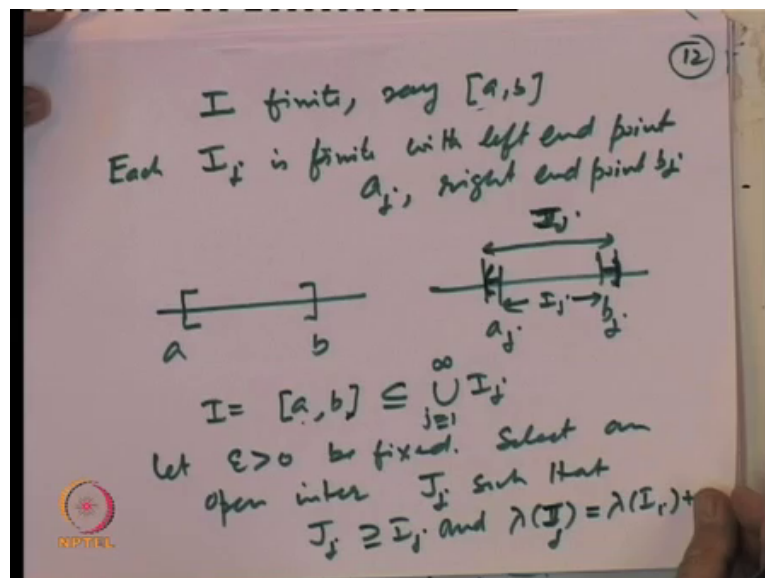 12
I finite, say [a,b]
Each I_j is finite with left end point
a_j, right end point b_j
J_j
a b
a_j I_j b_j
I = [a,b] ⊆ ∞∪j=1 I_j
Let ε>0 be fixed. Select an
open inter J_j such that
J_j ⊇ I_j and λ(J_j) = λ(I_j)+
NPTEL